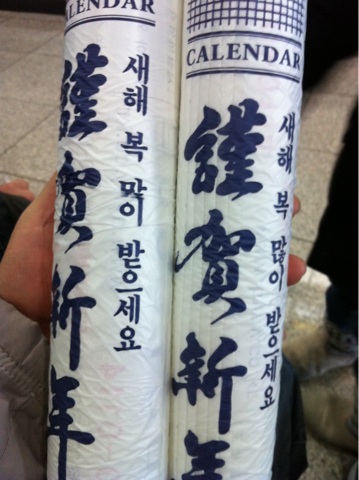 CALENDAR
謹賀新年
새해 복 많이 받으세요
CALENDAR
謹賀新年
새해 복 많이 받으세요